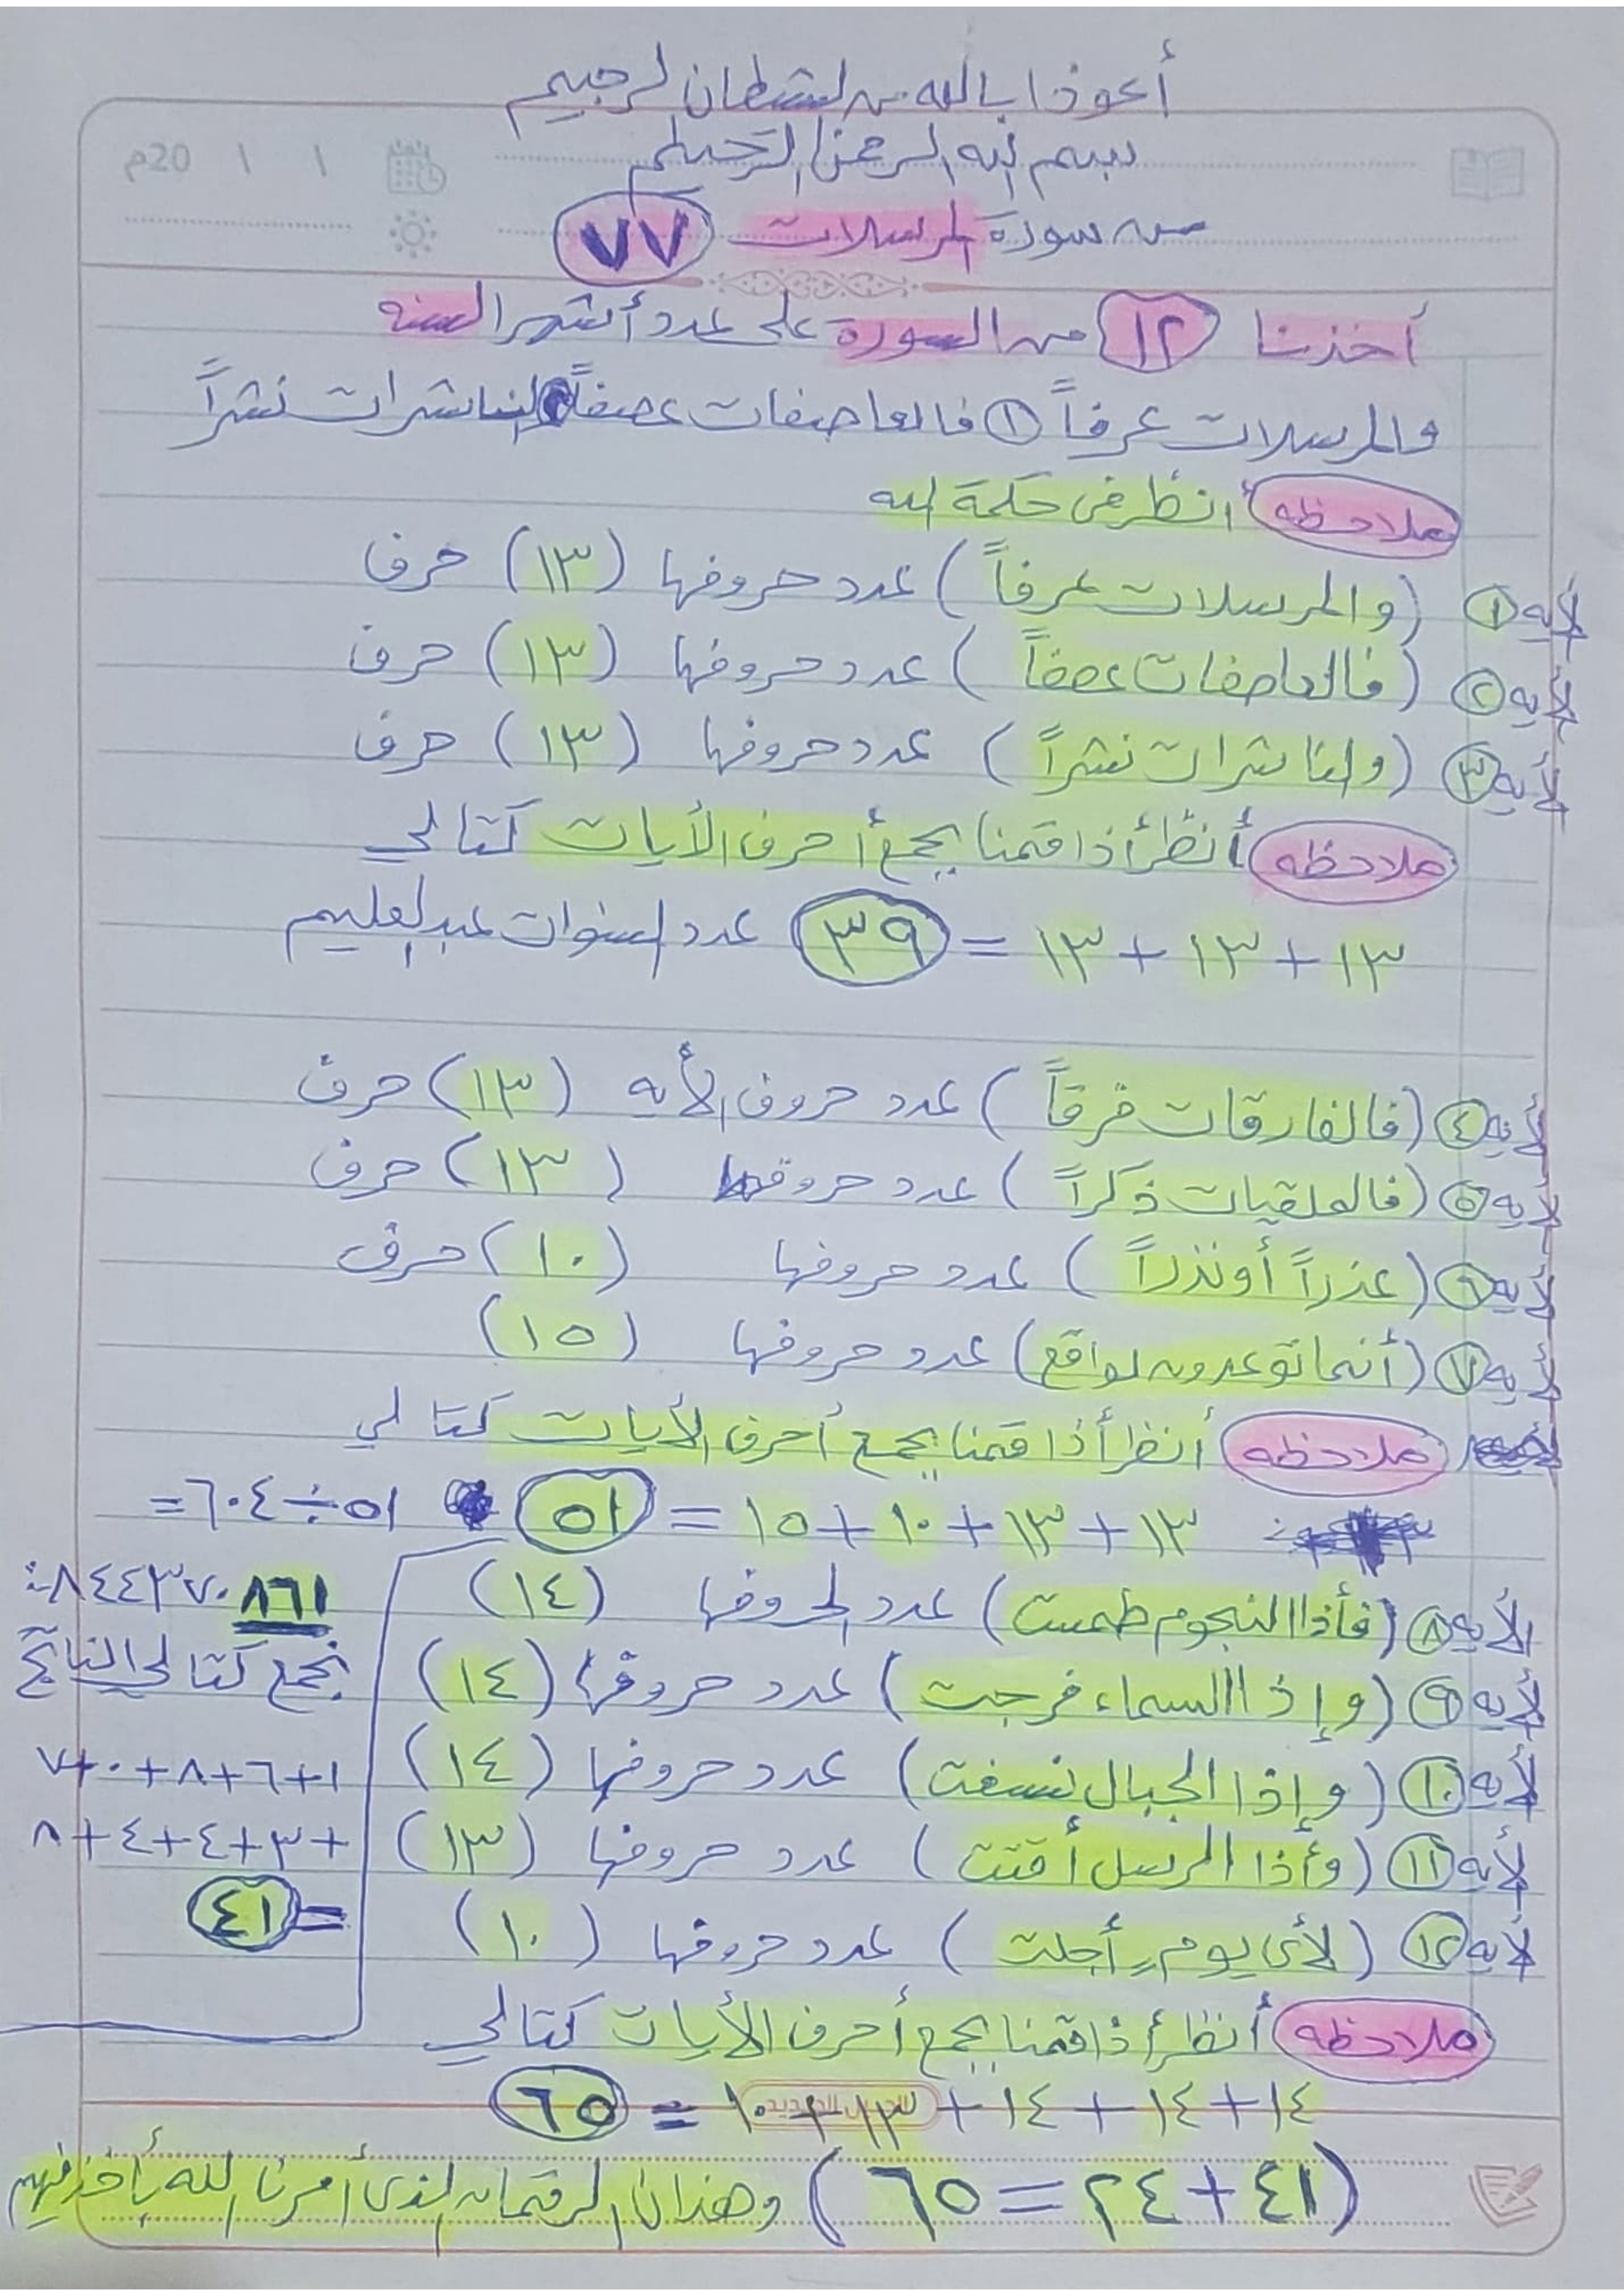 أعوذا بالله من الشطان الرجيم
بسم الله الرحمن الرحيم
٢٠م / /
من سورة المرسلات ٧٧
أخذنا ١٢ من السورة على عدد أشهر السنه
والمرسلات عرفاً ١ فالعاصفات عصفاً ٢ والناشرات نشراً
ملاحظه أنظر فى حكمة الله
لأيه ١ (والمرسلات عرفاً) عدد حروفها (١٣) حرف
لأيه ٢ (فالعاصفات عصفاً) عدد حروفها (١٣) حرف
لأيه ٣ (والناشرات نشراً) عدد حروفها (١٣) حرف
ملاحظه أنظر أذا قمنا بجمع أحرف الأيات كتالي
١٣ + ١٣ + ١٣ = ٣٩ عدد السنوات عبدالعليم
لأيه ٤ (فالفارقات فرقاً) عدد حروف الأيه (١٣) حرف
لأيه ٥ (فالملقيات ذكراً) عدد حروفها (١٣) حرف
لأيه ٦ (عذراً أونذراً) عدد حروفها (١٠) حرف
لأيه ٧ (أنما توعدون لواقع) عدد حروفها (١٥)
ملاحظه أنظر أذا قمنا بجمع أحرف الأيات كتالي
١٣ + ١٣ + ١٠ + ١٥ = ٥١ ٥١ ÷ ٦٠٤ =
الأيه ٨ (فأذا النجوم طمست) عدد لحروفها (١٤)
٨٤٤٣٧٠٨٦١
لأيه ٩ (وإذا السماء فرجت) عدد حروفها (١٤)
نجمع كتالي الناتج
لأيه ١٠ (وإذا الجبال نسفت) عدد حروفها (١٤)
١+٦+٨+٠+٧
لأيه ١١ (وأذا الرسل أقتت) عدد حروفها (١٣)
+٣+٤+٤+٨
لأيه ١٢ (لأى يومٍ أجلت) عدد حروفها (١٠)
= ٤١
ملاحظه أنظر أذا قمنا بجمع أحرف الأيات كتالي
١٤ + ١٤ + ١٤ + ١٣ + ١٠ = ٦٥
(٤١ + ٢٤ = ٦٥) وهذان الرقمان الذى أمرنا الله بأخذ فيهم